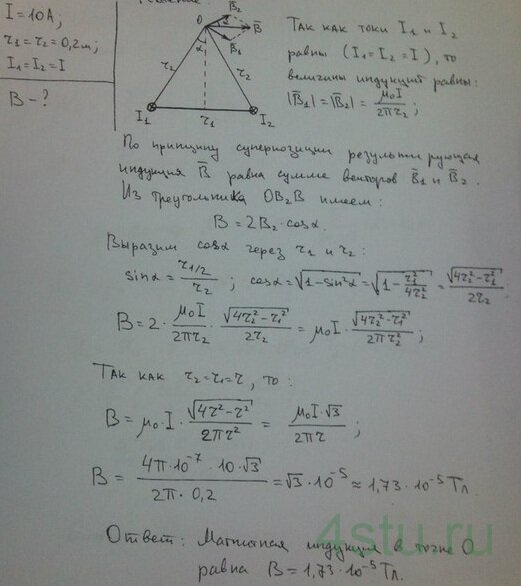 I = 10A;
r₁ = r₂ = 0,2м;
I₁ = I₂ = I
B - ?
O
B̅₂
B̅
B̅₁
α
r₂
r₂
I₁
r₁
I₂
Так как токи I₁ и I₂
равны (I₁ = I₂ = I), то
величины индукций равны:
|B̅₁| = |B̅₂| = μ₀I / 2πr₂ ;
По принципу суперпозиции результирующая
индукция B̅ равна сумме векторов B̅₁ и B̅₂.
Из треугольника OB₂B имеем:
B = 2B₂·cosα.
Выразим cosα через r₁ и r₂:
sinα = r₁/₂ / r₂ ; cosα = √(1-sin²α) = √(1 - r₁²/4r₂²) = √(4r₂²-r₁²) / 2r₂
B = 2· μ₀I / 2πr₂ · √(4r₂²-r₁²) / 2r₂ = μ₀I · √(4r₂²-r₁²) / 2πr₂² ;
Так как r₂ = r₁ = r, то:
B = μ₀·I· √(4r²-r²) / 2πr² = μ₀I·√3 / 2πr ;
B = 4π·10⁻⁷·10·√3 / 2π·0,2 = √3·10⁻⁵ ≈ 1,73·10⁻⁵Тл.
Ответ: Магнитная индукция в точке O
равна B = 1,73·10⁻⁵Тл.
4stu.ru